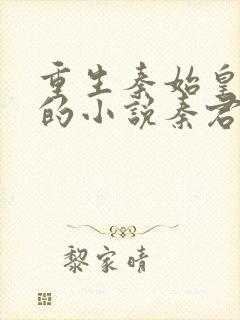 重生秦始皇
的小说秦君
黎家晴